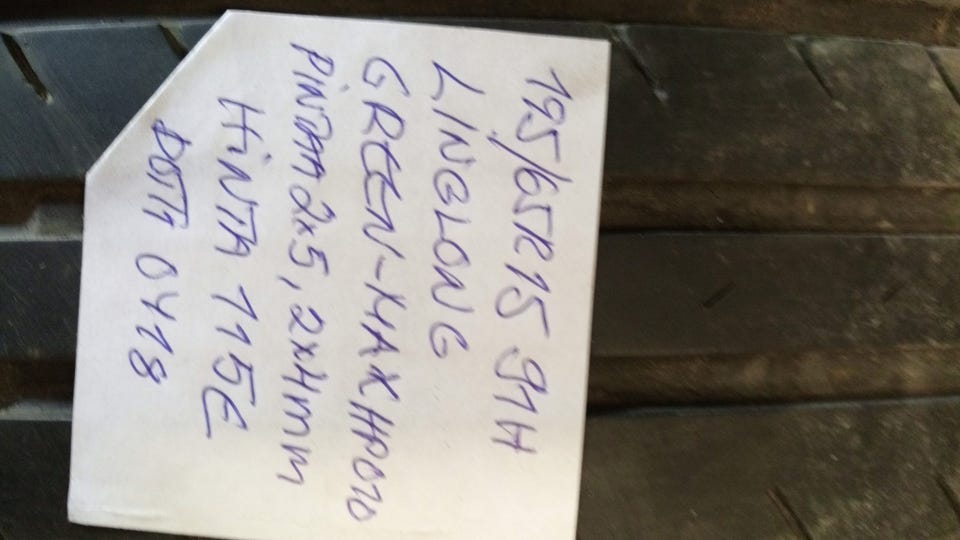 195/65R15 91H
LINGLONG
GREEN-MAX HP010
PINTAA 2x5, 2x4mm
HiNTA 115E
DOTTI 0418